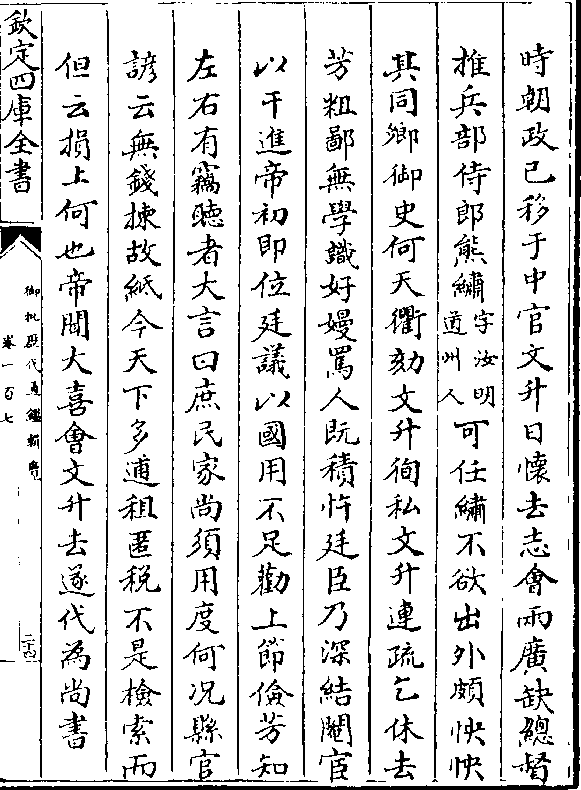 時朝政已移于中官文升日懷去志會兩廣缺總督
推兵部侍郎熊繡字汝明道州人可任繡不欲出外頗怏怏
其同鄉御史何天衢劾文升徇私文升連疏乞休去
芳粗鄙無學識好嫚罵人既積忤廷臣乃深結閹宦
以干進帝初即位廷議以國用不足勸上節儉芳知
左右有竊聽者大言曰庶民家尚須用度何况縣官
諺云無錢揀故紙今天下多逋租匿税不是檢索而
但云損上何也帝聞大喜會文升去遂代為尚書
欽定四庫全書
御批歷代通鑑輯覽
卷一百七
二十四